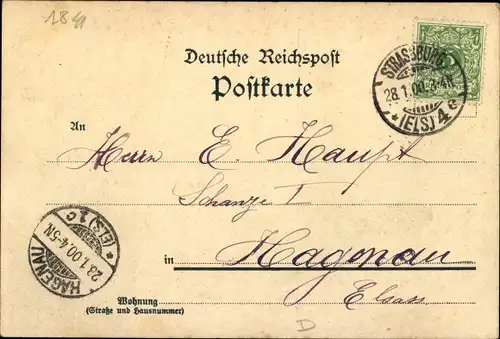 Deutsche Reichspost
Postkarte
STRASSBURG
28.1.00.3-4N
* (ELS) 4 e
An
Herrn E. Haupt
Schanze I
in Hagenau
Elsass
HAGENAU
28.1.00.4-5N
* (ELS) 1 c
Wohnung
(Straße und Hausnummer)
D